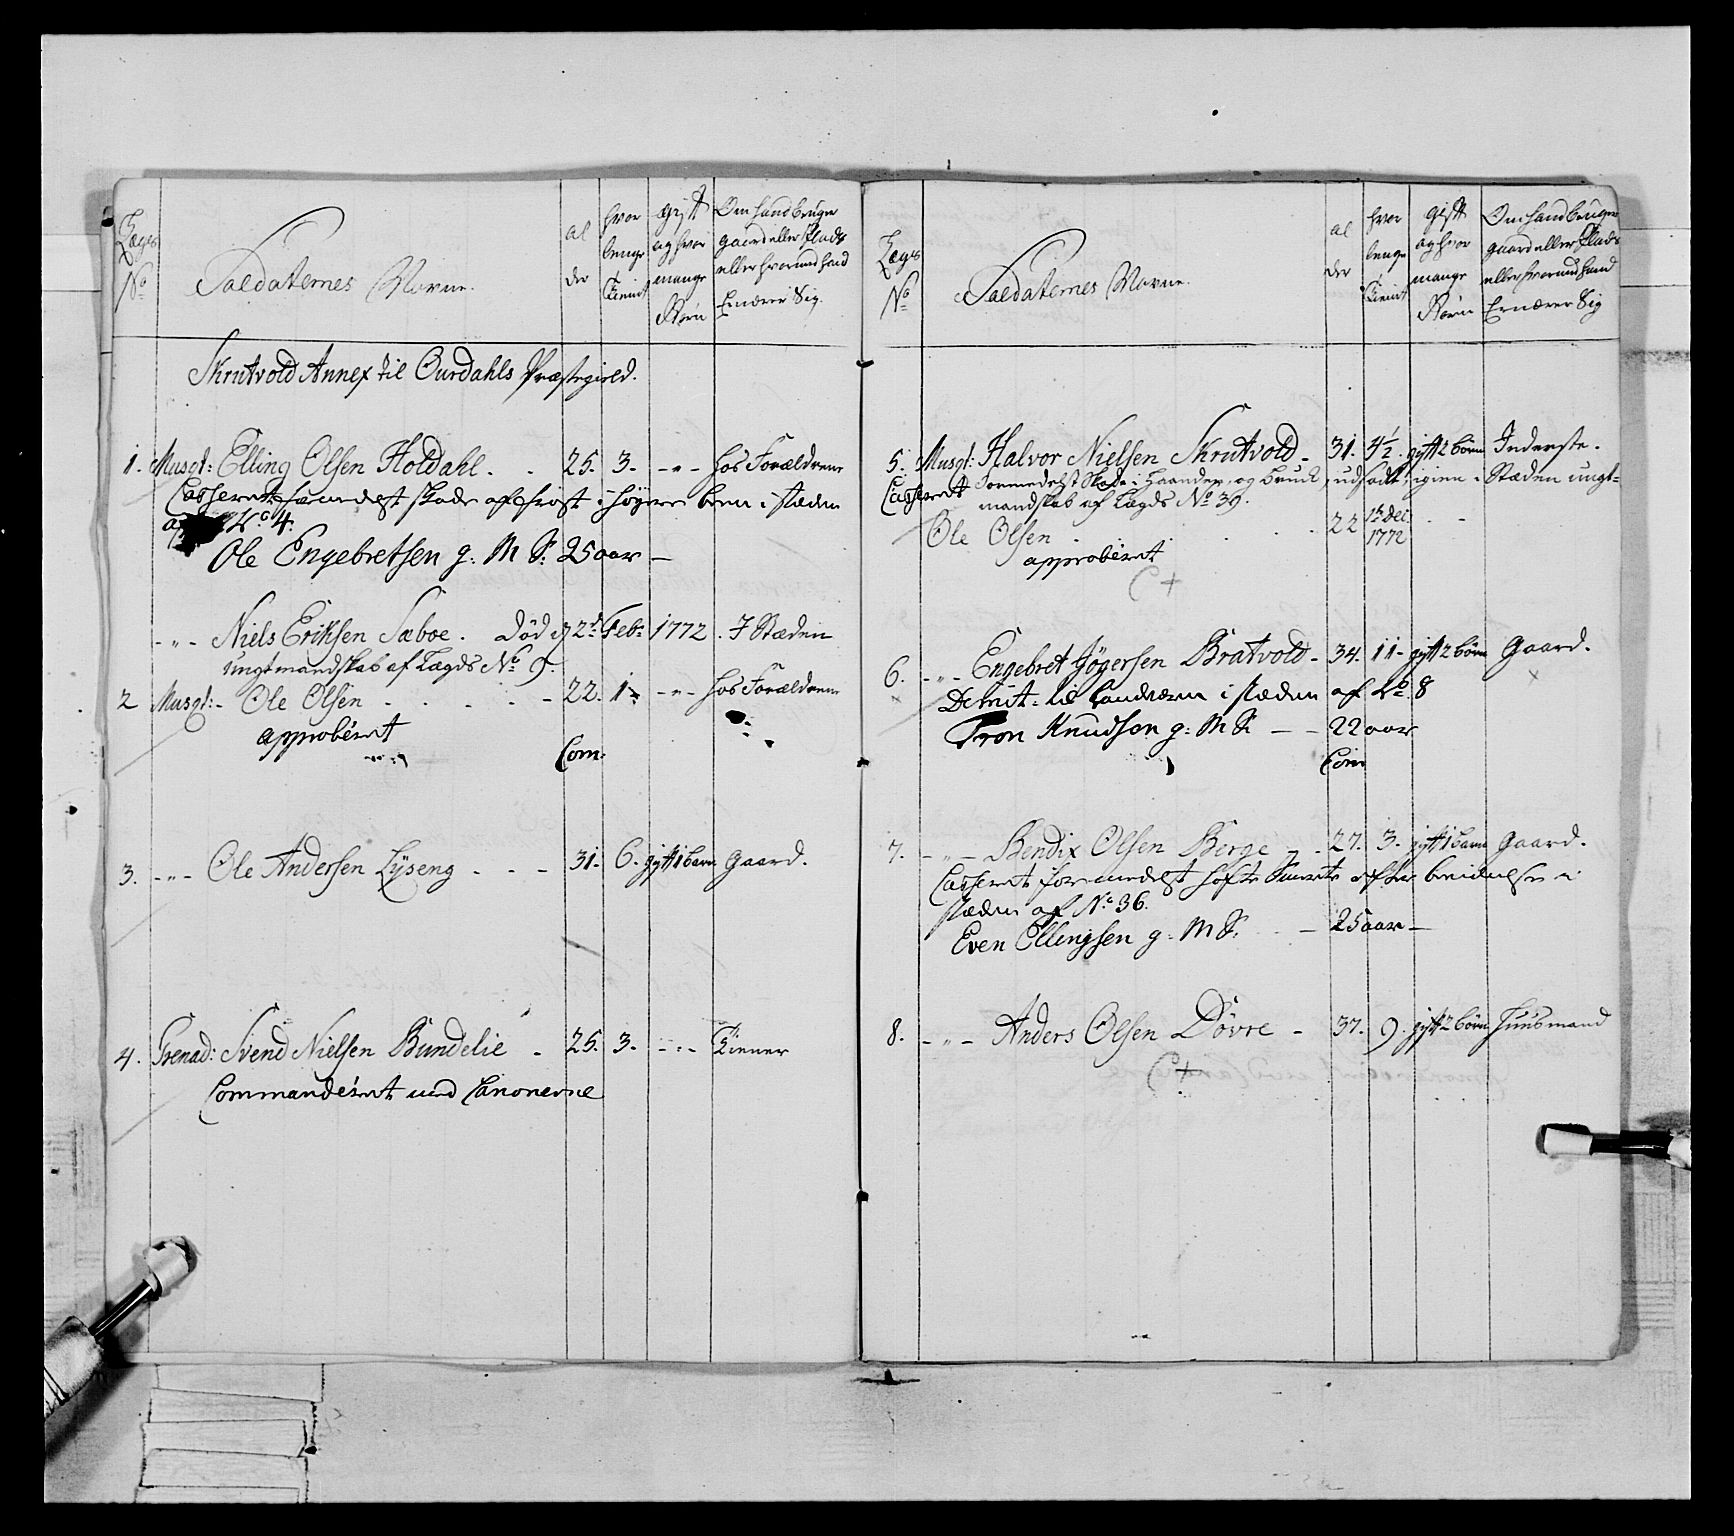 Lægs No
Soldaternes Navne.
al der
hvor lenge tient
gift og hvor mange Børn
Om hand bruger gaard eller Plads eller hvormed hand Ernærer Sig.
Skrutvold Annex til Ourdahls Præstegield.
1. Musqt: Elling Olsen Holdahl. . 25. 3. -"- hos Forældrene
Casseret formedelst skade af frost i høyre been i stæden
af No 4.
Ole Engebretsen g: M S: 25 aar —
-"- Niels Eriksen Sæboe. død d 2d Feb: 1772. I Stæden
ungt mandskab af Lægds No 9.
2 Musqt: - Ole Olsen . . . . - 22. 1 -"- hos Forældrene
approberet
Com:
3. -"- Ole Andersen Lÿseng . - - 31. 6. gift 1 barn gaard.
4. Grenad: Svend Nielsen Bundelie . 25. 3. -"- Tiener
Commanderet med Canonerne
Lægs No
Soldaternes Navne.
al der
hvor lenge tient
gift og hvor mange Børn
Om hand bruger gaard eller Plads eller hvormed hand Ernærer Sig
5. Musqt: Halvor Nielsen Skrutvold - 31. 4½. gift 2 børn Inderste.
Casseret formedelst Skade i Haanden, og Brudt, udsadt, igien i Stæden ungt-
mandskab af Lægds No 39.
Ole Olsen . . . . . 22 1ste Dec: 1772 . -
approberet
C +
6. -"- Engebret Jøgersen Bratvold - 34. 11 - gift 2 børn Gaard.
Demit: til Landværn i stæden af No. 8
Tron Knudsen g: M S: - - 22 aar
Com
7. -"- Bendix Olsen Berge - . 27. 3. gift 1 barn Gaard.
Casseret formedelst hofte Smerte efter
stæden af No 36.
Even Ellingsen g: M S: . - 25 aar —
8. -"- Anders Olsen Dövre - 37. 9. gift 2 børn Huusmand
C +